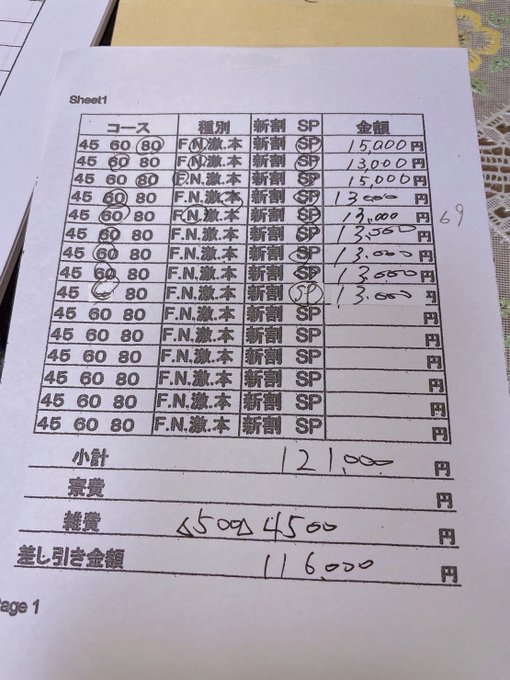 Sheet1
コース 種別 新割 SP 金額
45 60 80 F.N.激.本 新割 SP 15,000円
45 60 80 F.N.激.本 新割 SP 13,000円
45 60 80 F.N.激.本 新割 SP 15,000円
45 60 80 F.N.激.本 新割 SP 13,000円
45 60 80 F.N.激.本 新割 SP 13,000円
45 60 80 F.N.激.本 新割 SP 13,000円
45 60 80 F.N.激.本 新割 SP 13,000円
45 60 80 F.N.激.本 新割 SP 13,000円
45 80 F.N.激.本 新割 SP 13,000円
45 60 80 F.N.激.本 新割 SP 円
45 60 80 F.N.激.本 新割 SP 円
45 60 80 F.N.激.本 新割 SP 円
45 60 80 F.N.激.本 新割 SP 円
45 60 80 F.N.激.本 新割 SP 円
45 60 80 F.N.激.本 新割 SP 円
69
小計 121,000 円
寮費 円
雑費 △500△4500 円
差し引き金額 116,000 円
Page 1